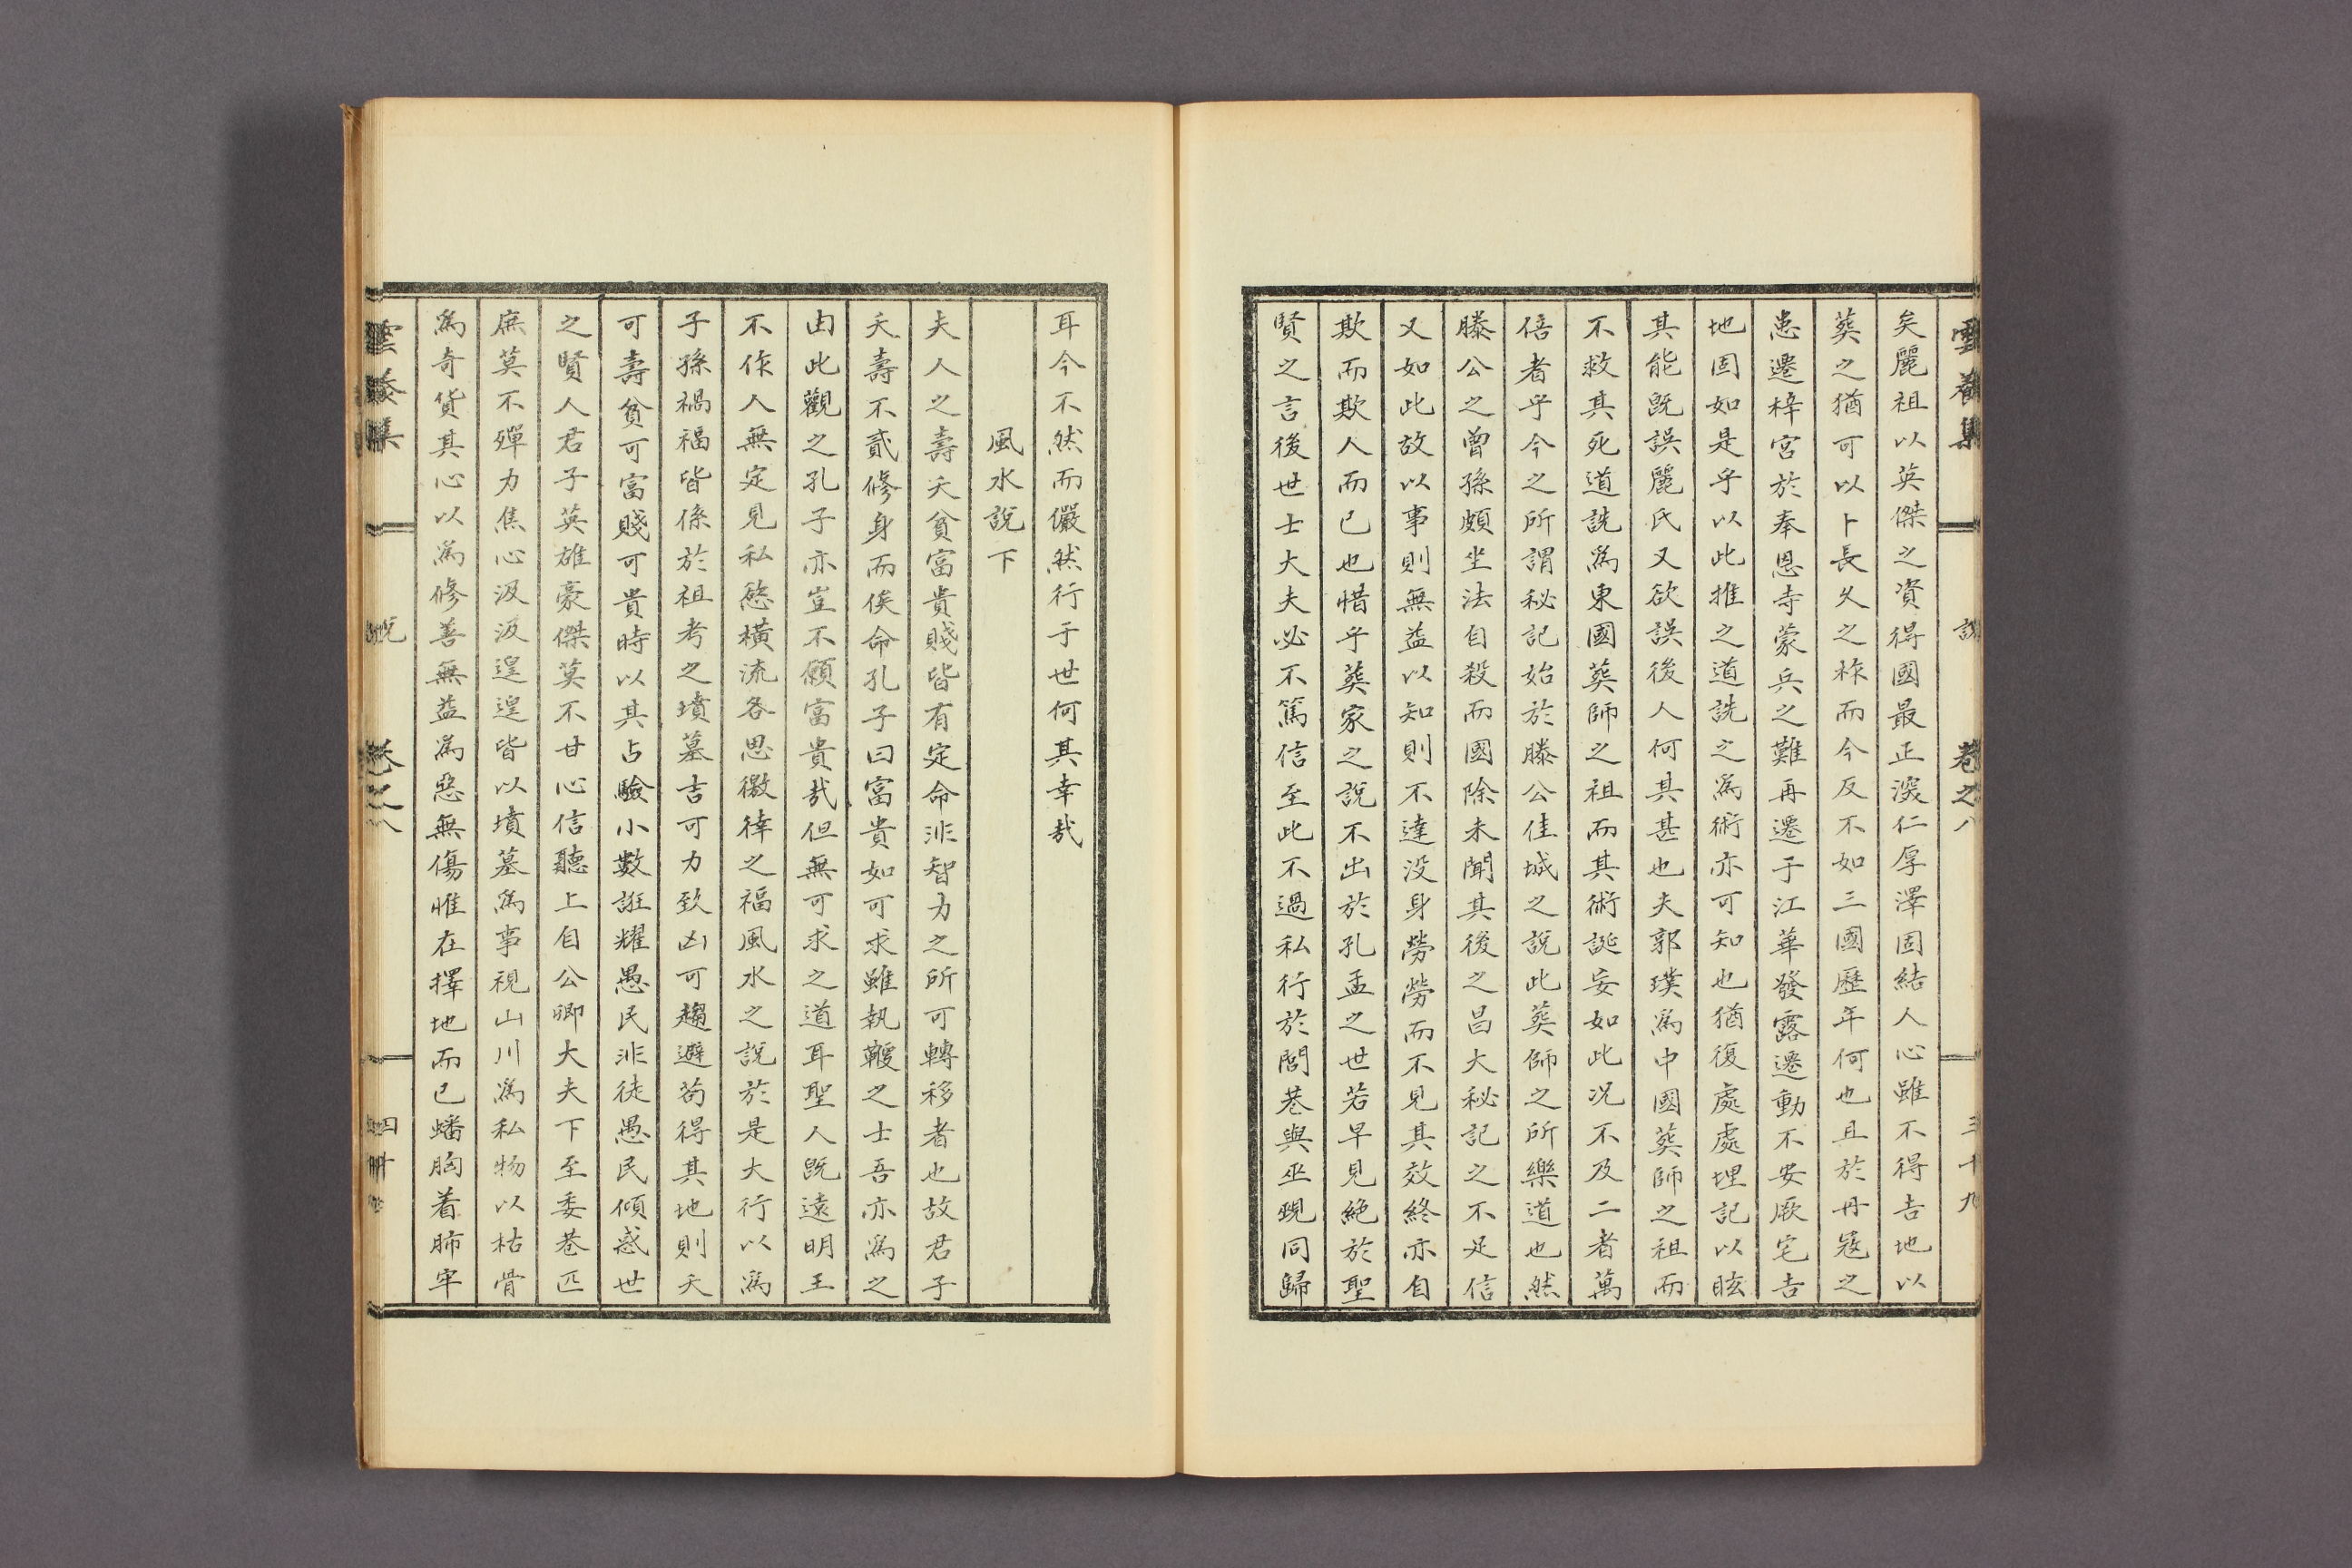 雲養集 說 卷之八 三十九
矣麗祖以英傑之資得國最正深仁厚澤固結人心雖不得吉地以
葬之猶可以卜長久之祚而今反不如三國歷年何也且於丹寇之
患遷梓宮於奉恩寺蒙兵之難再遷于江華發露遷動不安厥宅吉
地固如是乎以此推之道詵之爲術亦可知也猶復處處埋記以眩
其能旣誤麗氏又欲誤後人何其甚也夫郭璞爲中國葬師之祖而
不救其死道詵爲東國葬師之祖而其術誕妄如此况不及二者萬
倍者乎今之所謂秘記始於滕公佳城之說此葬師之所樂道也然
滕公之曾孫頗坐法自殺而國除未聞其後之昌大秘記之不足信
又如此故以事則無益以知則不達没身勞勞而不見其效終亦自
欺而欺人而已也惜乎葬家之說不出於孔孟之世若早見絕於聖
賢之言後世士大夫必不篤信至此不過私行於閭巷與巫覡同歸
耳今不然而儼然行于世何其幸哉
風水說下
夫人之壽夭貧富貴賤皆有定命非智力之所可轉移者也故君子
夭壽不貳修身而俟命孔子曰富貴如可求雖執鞭之士吾亦爲之
由此觀之孔子亦豈不願富貴哉但無可求之道耳聖人旣遠明王
不作人無定見私慾橫流各思徼倖之福風水之說於是大行以爲
子孫禍福皆係於祖考之墳墓吉可力致凶可趨避苟得其地則夭
可壽貧可富賤可貴時以其占驗小數誑耀愚民非徒愚民傾惑世
之賢人君子英雄豪傑莫不甘心信聽上自公卿大夫下至委巷匹
庶莫不殫力焦心汲汲遑遑皆以墳墓爲事視山川爲私物以枯骨
爲奇貨其心以爲修善無益爲惡無傷惟在擇地而已蟠胸着肺牢
雲養集 說 卷之八 四十